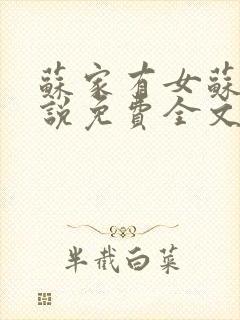 蘇家有女蘇
說免費全文
半截白菜